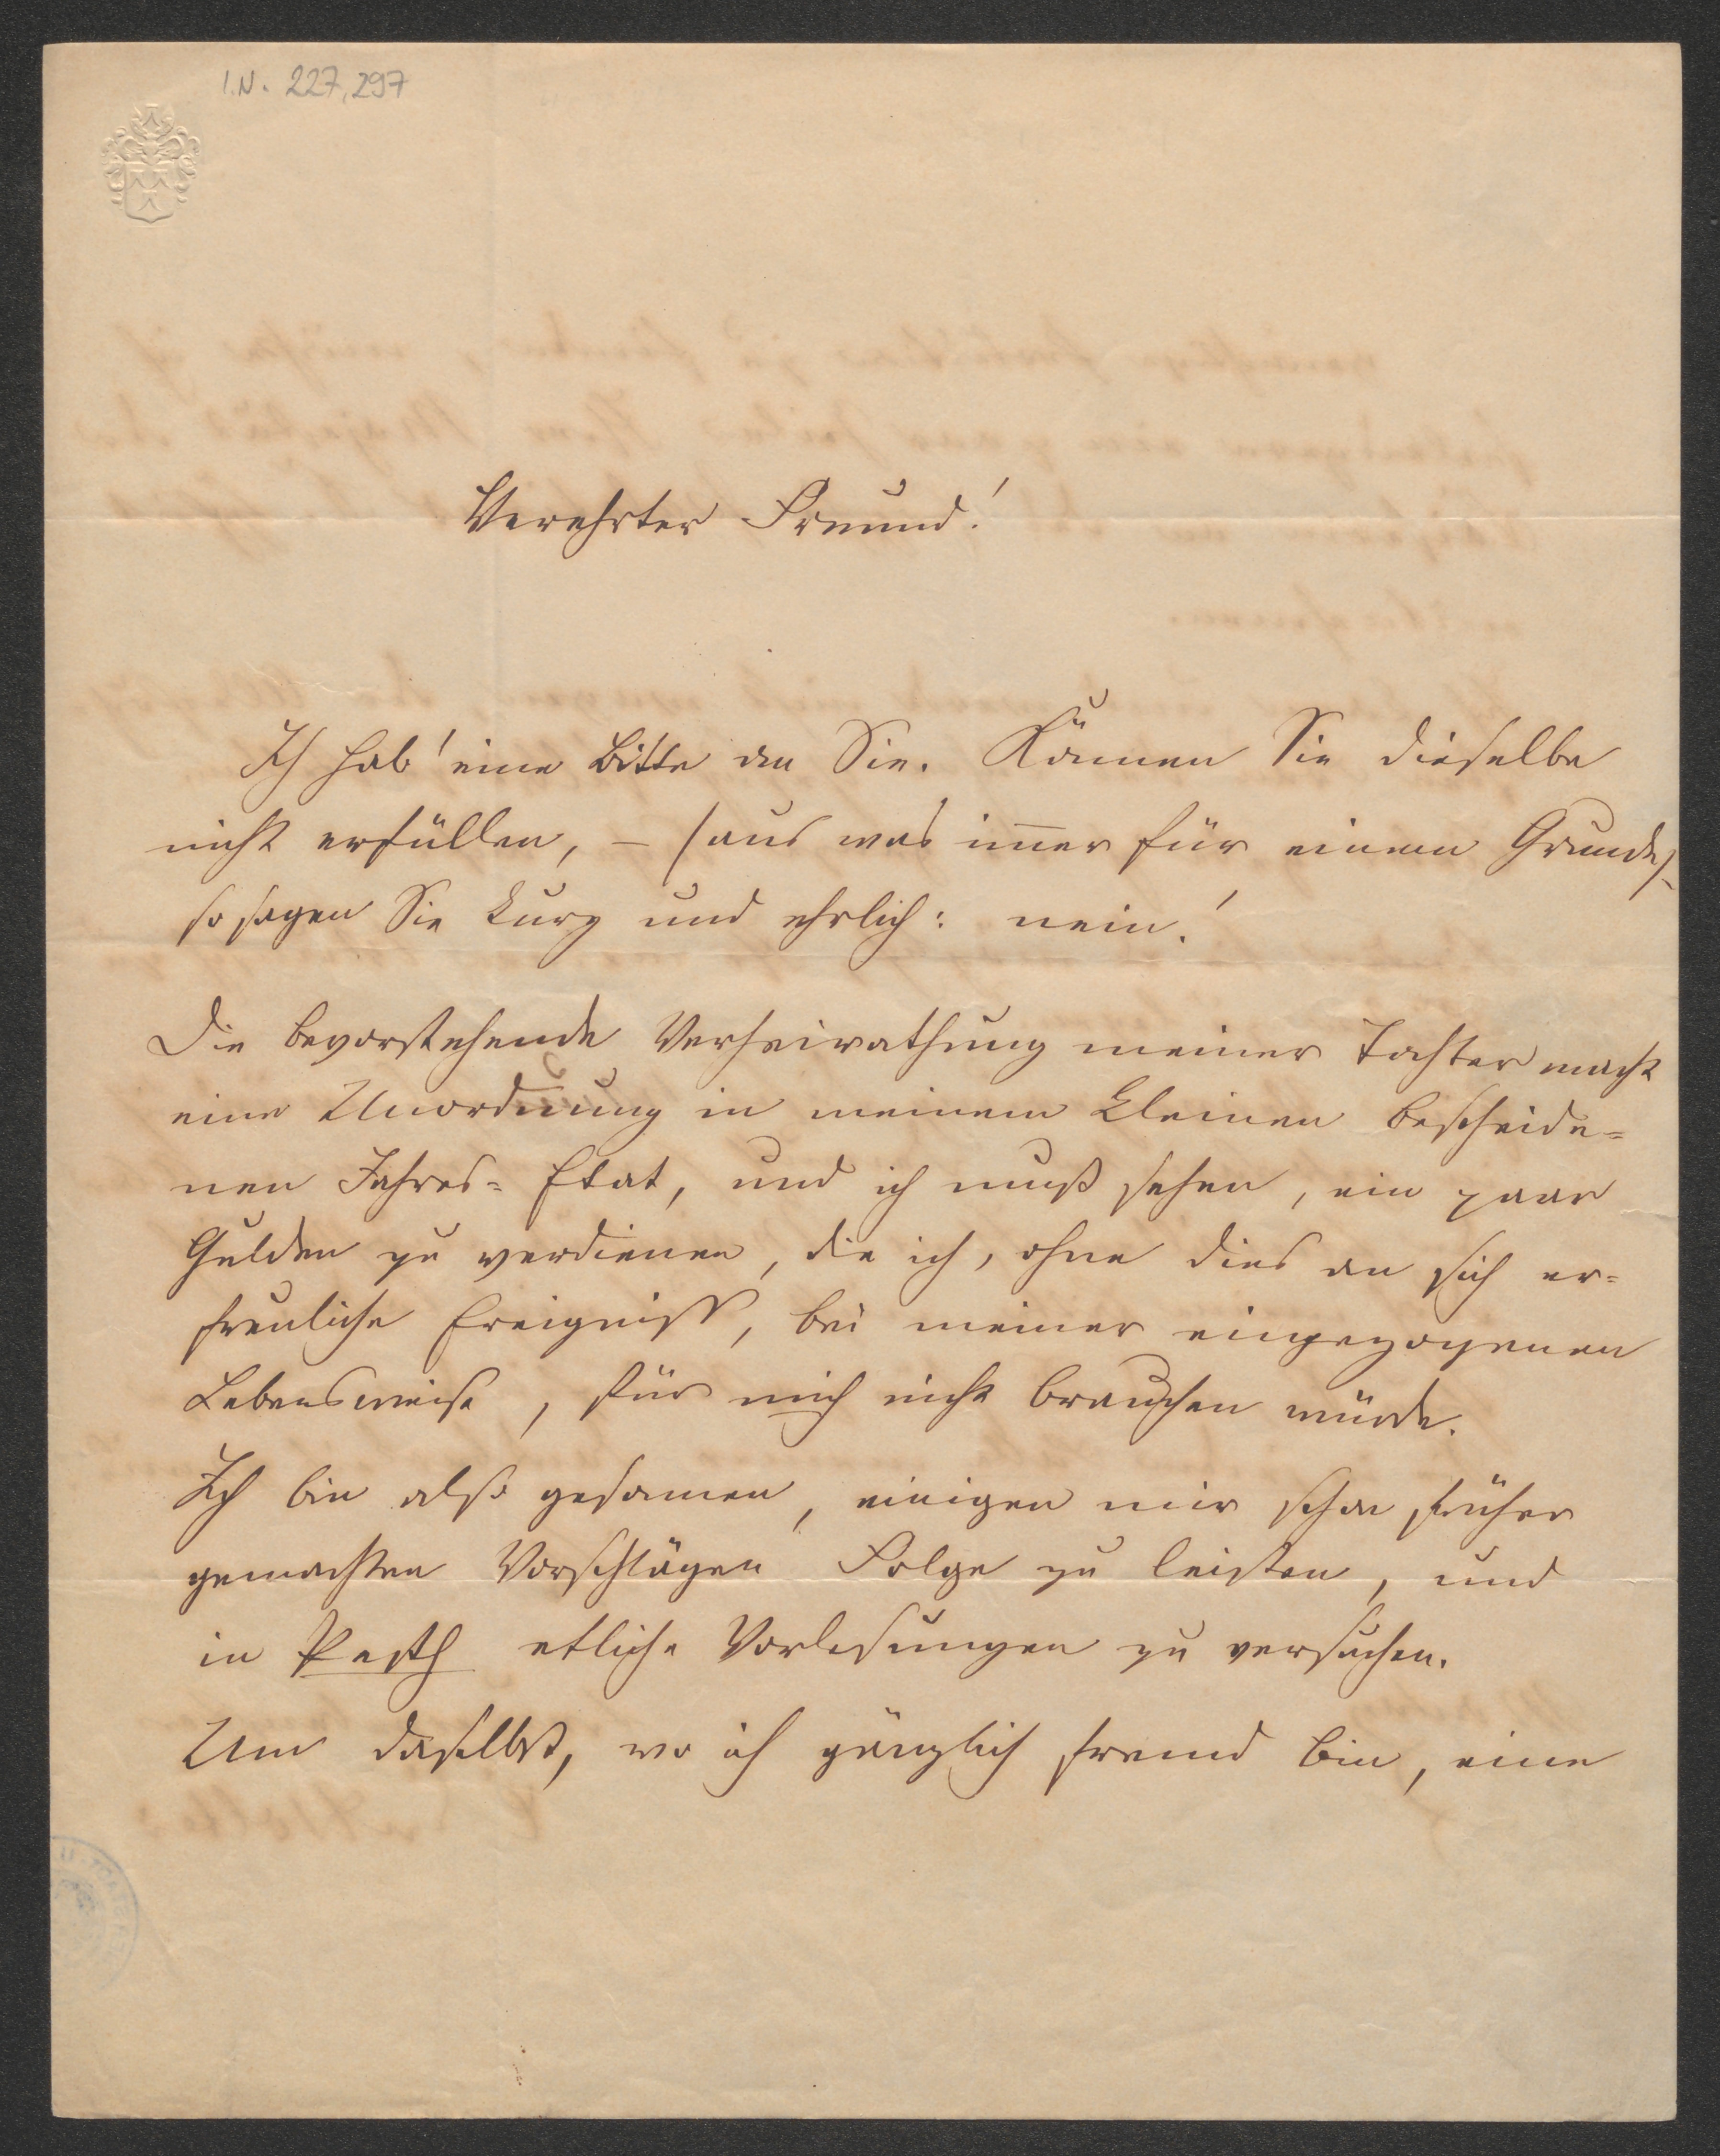 I.N. 227,297
Verehrter Freund!
Ich hab' eine Bitte an Sie. Können Sie dieselbe
nicht erfüllen, – (aus was im̅er für einem Grunde)
so sagen Sie kurz und ehrlich: nein!
Die bevorstehende Verheirathung meiner Tochter macht
eine Unordnung in meinem kleinen bescheide-
nen Jahres-Etat, und ich muß sehen, ein paar
Gulden zu verdienen, die ich, ohne dies an sich er-
freuliche Ereigniß, bei meiner eingezogenen
Lebensweise, für mich nicht brauchen würde.
Ich bin also gesonnen, einigen mir schon früher
gemachten Vorschlägen Folge zu leisten, und
in Pesth etliche Vorlesungen zu versuchen.
Um daselbst, wo ich gänzlich fremd bin, eine